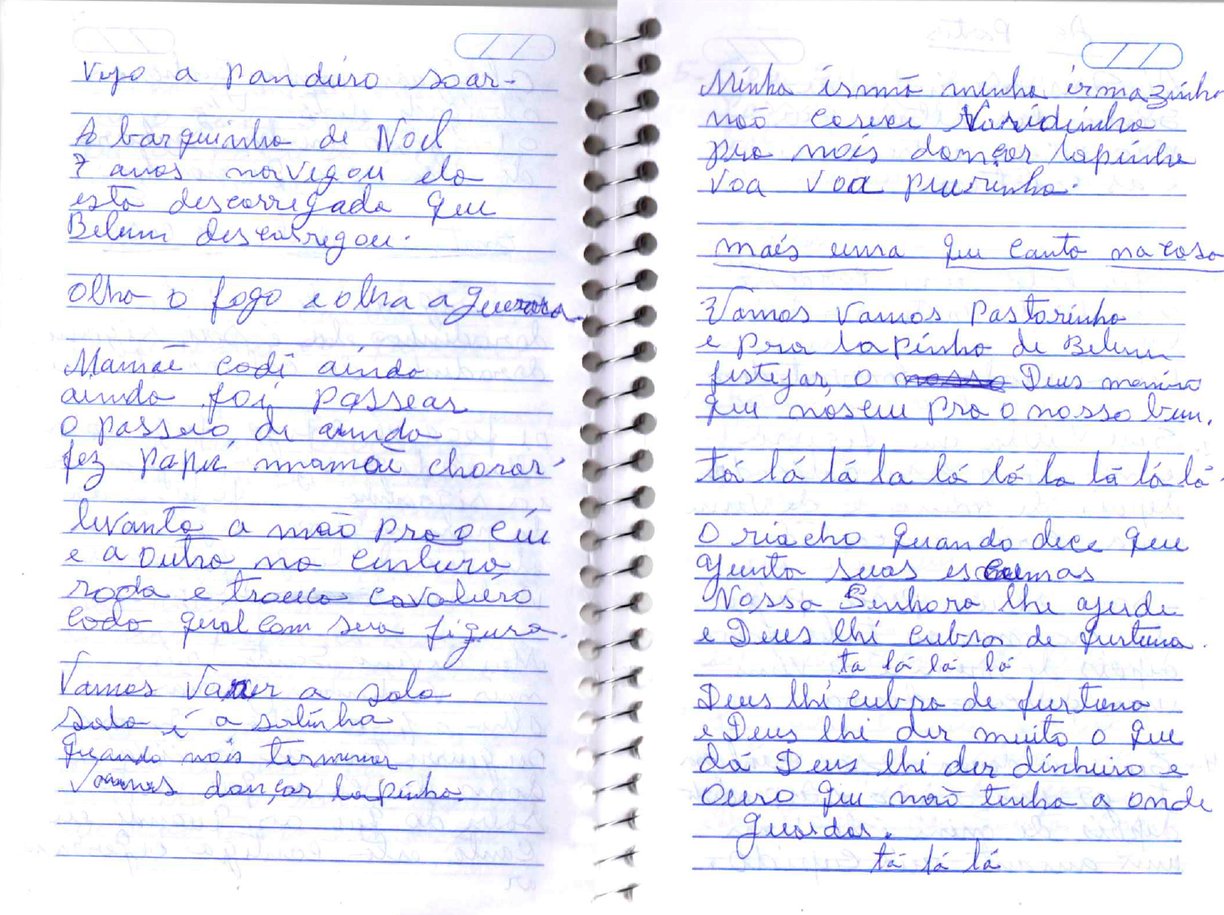 Vejo a pandeiro soar.
A barquinha de Noel
7 anos navegou ela
esta descarregada que
Belem descarregou.
Olha o fogo e olha a guerra.
Mamãe cadê ainda
ainda foi passear
o passeio de ainda
fez papai mamãe chorar
levanta a mão pra o céu
e a outra na cintura
roda e troca cavaleiro
cada qual com seu figura.
Vamos Varrer a sala
sala é a salinha
quando nóis terminar
Vamos dançar lapinha.
Minha irmã minha irmazinha
não
pra nóis dançar lapinha
Voa Voa
mais uma que canta na casa
Vamos Vamos Pastorinha
e pra lapinha de Belem
festejar o Deus menino
que náseu pra o nosso bem.
tá lá lá la lá lá la lá lá lá.
O riacho quando dece que
yunta suas escumas
Nossa Senhora lhe ajude
e Deus lhi cubra de furtuna.
ta lá lá lá
Deus lhi cubra de furtuna
e Deus lhi der muito o que
dá Deus lhi der dinheiro e
Ouro que não tenha a onde
guardar.
tá lá lá